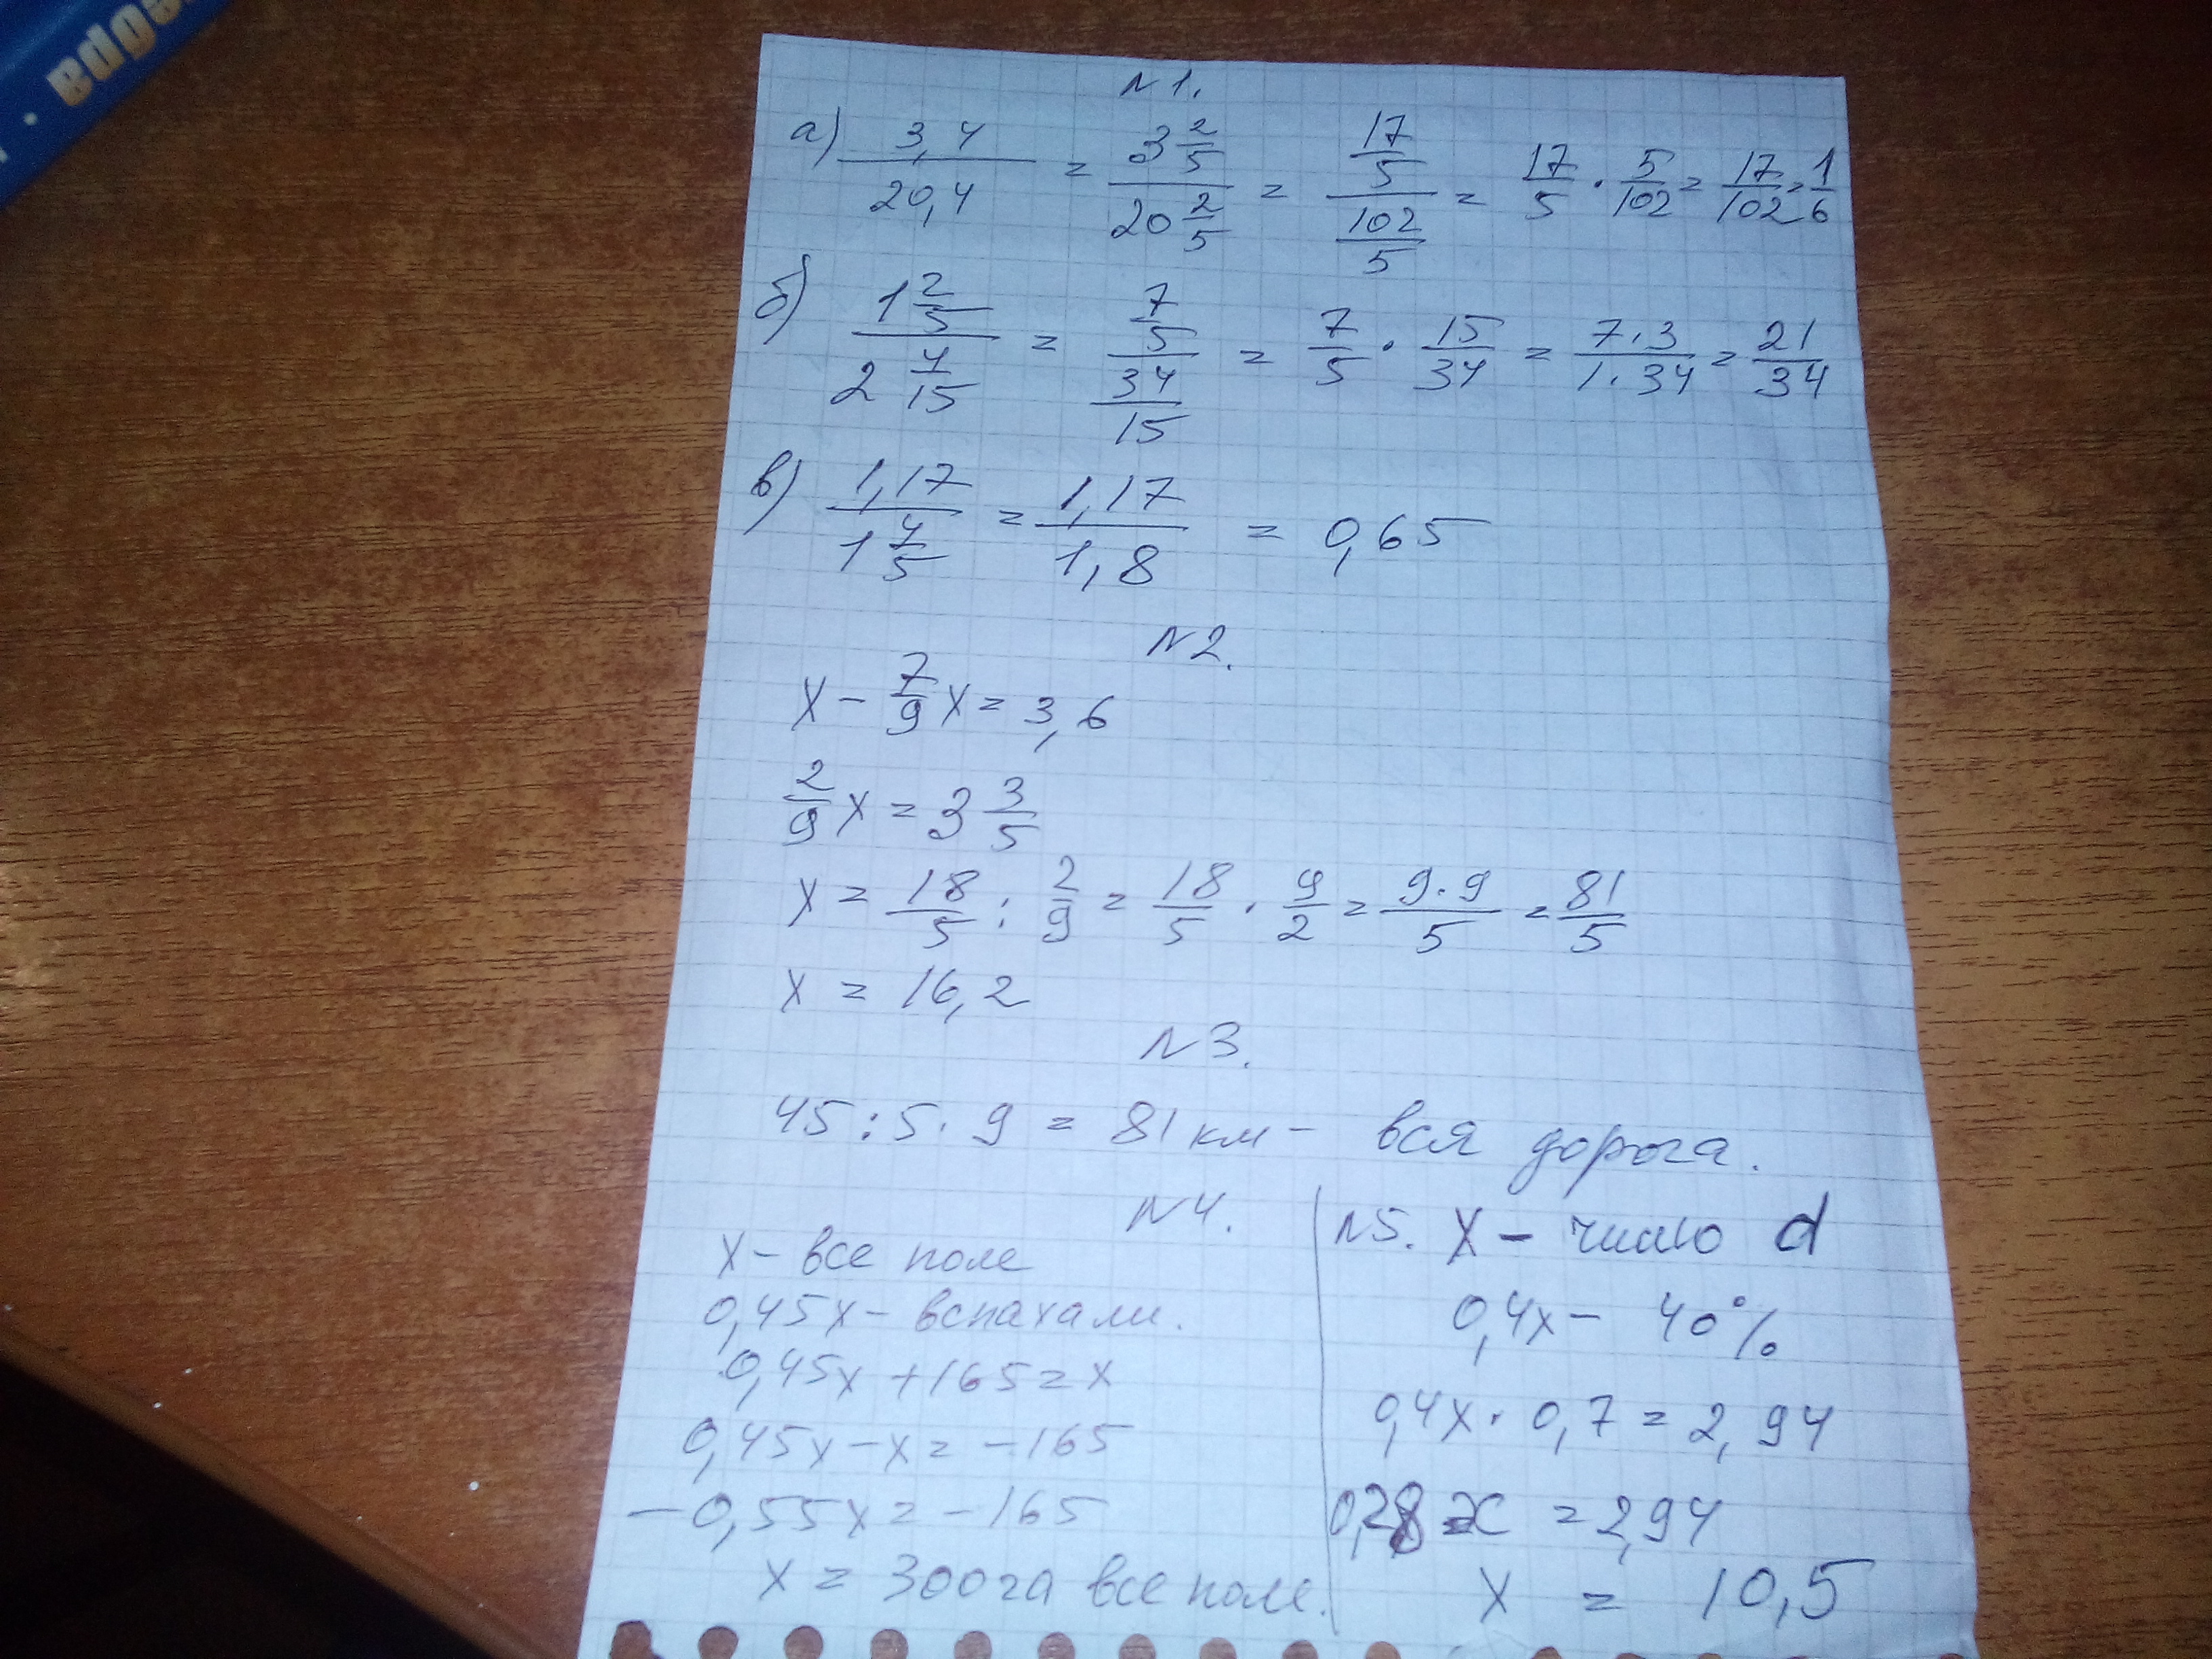 N1.
а) 3,4/20,4 = 3 2/5 / 20 2/5 = 17/5 / 102/5 = 17/5 · 5/102 = 17/102 = 1/6
б) 1 2/5 / 2 4/15 = 7/5 / 34/15 = 7/5 · 15/34 = 7·3/1·34 = 21/34
в) 1,17 / 1 4/5 = 1,17/1,8 = 0,65
N2.
x - 7/9 x = 3,6
2/9 x = 3 3/5
x = 18/5 : 2/9 = 18/5 · 9/2 = 9·9/5 = 81/5
x = 16,2
N3.
45 : 5 · 9 = 81 км - вся дорога.
N4.
x - все поле
0,45x - вспахали.
0,45x + 165 = x
0,45x - x = -165
-0,55x = -165
x = 300 га все поле.
N5. x - число d
0,4x - 40%
0,4x · 0,7 = 2,94
0,28 x = 2,94
x = 10,5